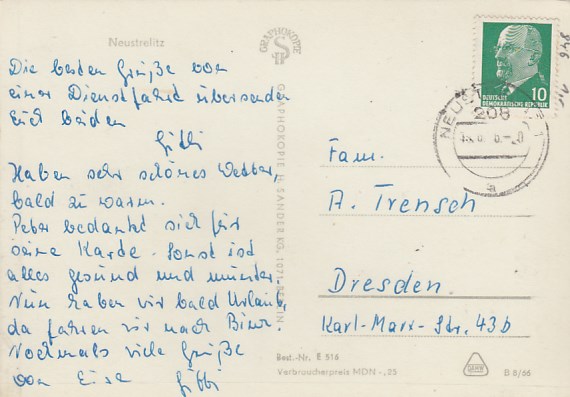 Neustrelitz
Die besten Grüße von
einer Dienstfahrt übersendet
Euch beiden
Gitti
Haben sehr schönes Wetter,
bald zu warm.
Peter bedankt sich für
seine Karte. Sonst ist
alles gesund und munter.
Nun haben wir bald Urlaub,
da fahren wir nach Binz.
Nochmals viele Grüße
von Gitti
GRAPHOKOPIE
GRAPHOKOPIE H. SANDER KG, 1071 BERLIN
DEUTSCHE
DEMOKRATISCHE REPUBLIK
10
208
a
Fam.
A. Trensch
Dresden.
Karl-Marx-Str. 43b
Best.-Nr. E 516
Verbraucherpreis MDN -,25
B 8/66